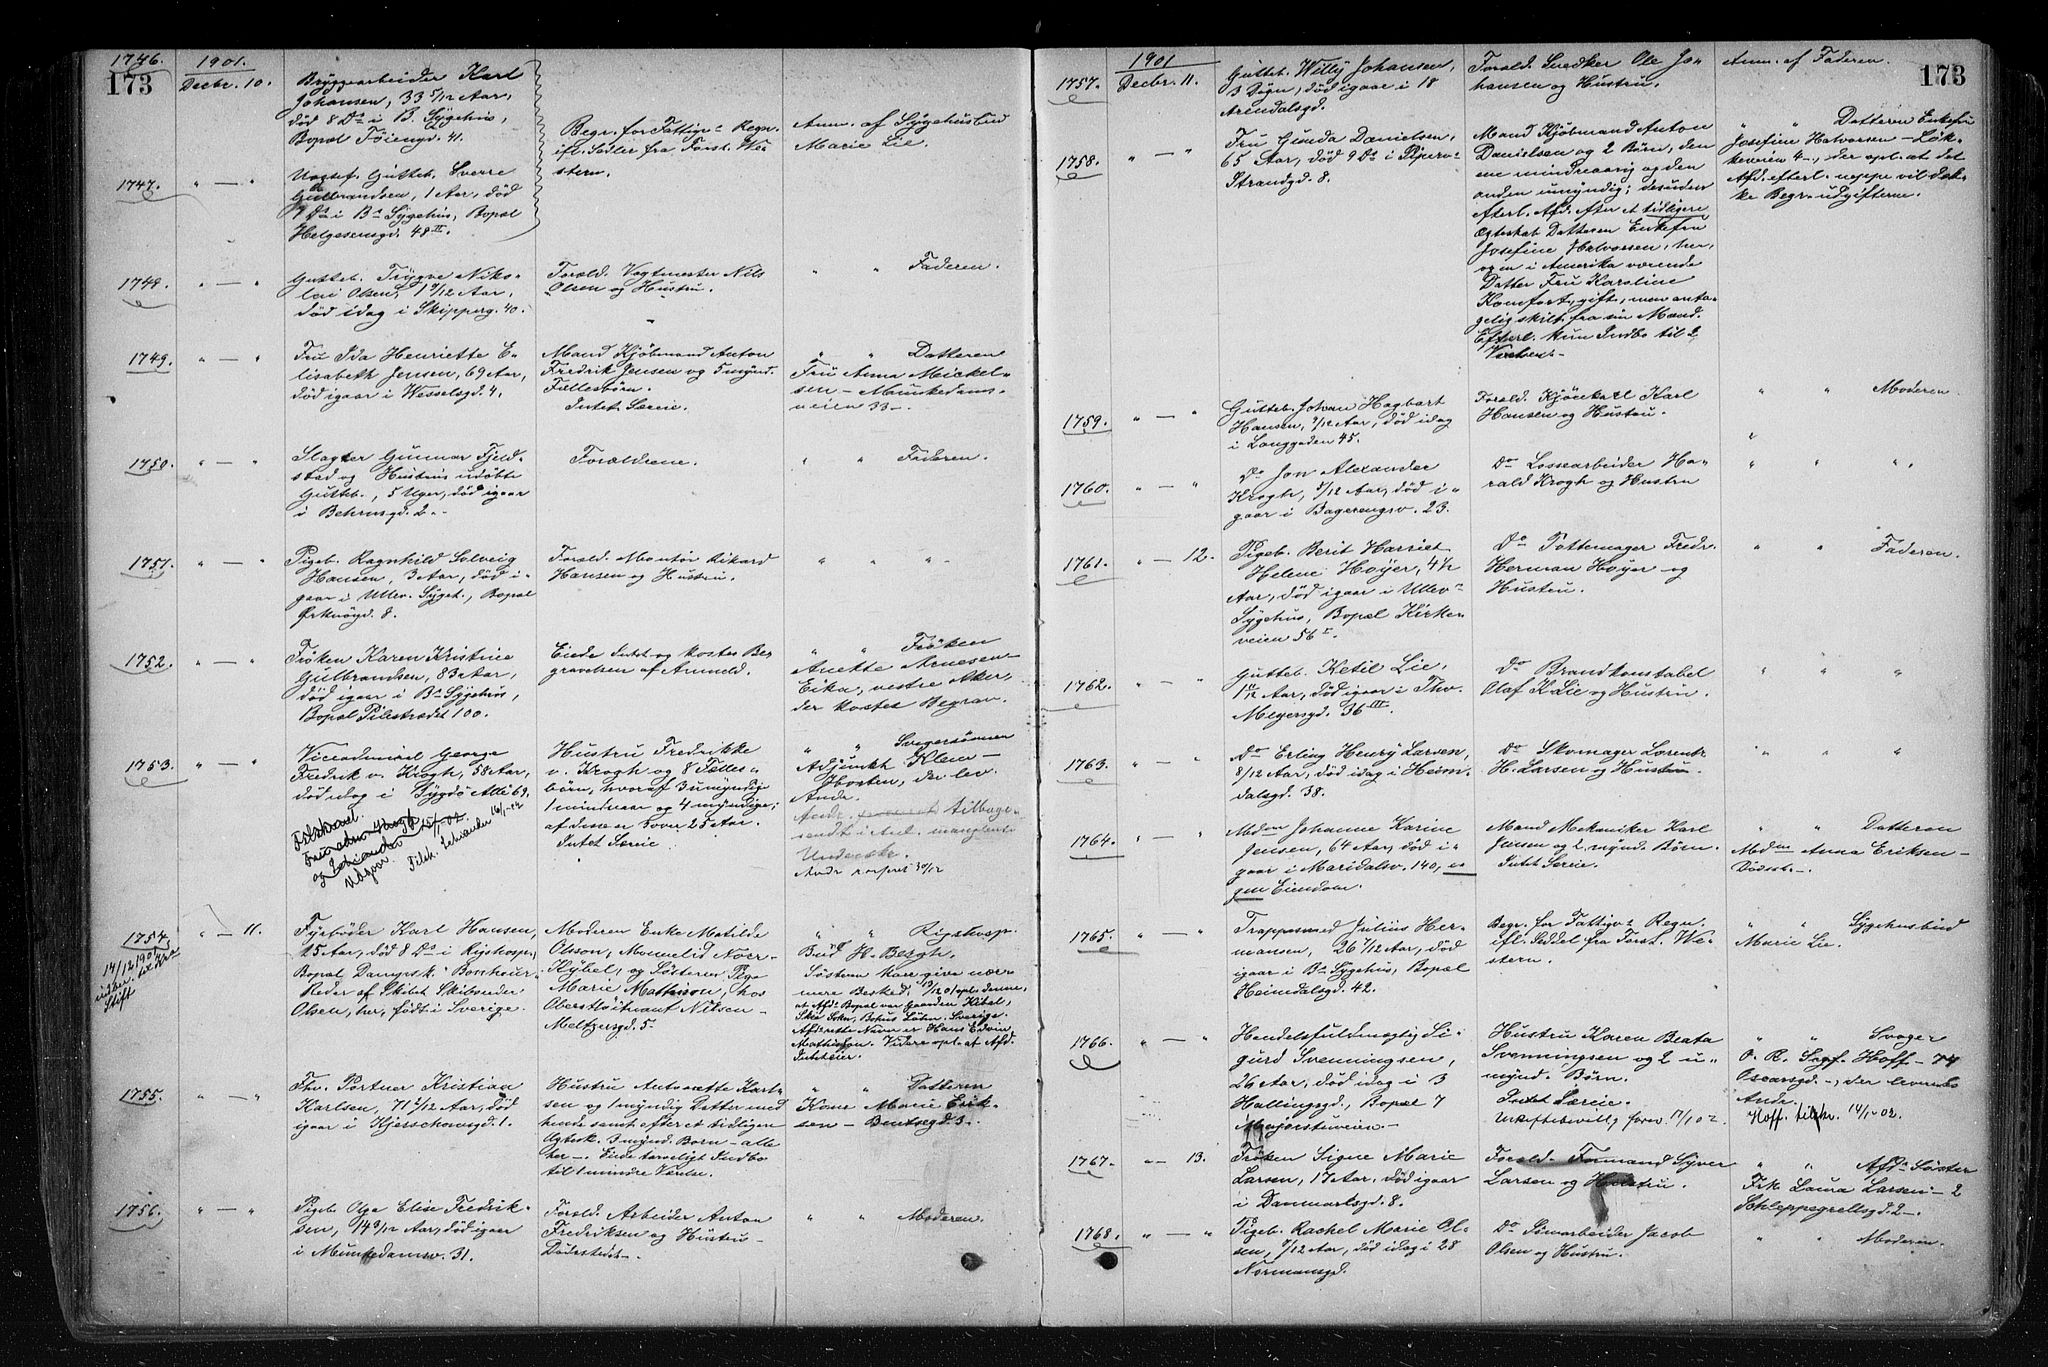 173
1746.
1901.
Decbr. 10.
Bryggearbeider Karl
Johansen, 33 5/12 Aar,
død 8 Ds i B. Sygehus,
Bopæl Tøiengd. 41.
Begr. for Fattigv. Regn.
ifl. Sedler fra Forst. We-
stern.
Anm. af Sygehusbud
Marie Lie.
1747.
" — "
Uægtef. Gutteb. Sverre
Gulbrandsen, 1 Aar, død
9 Ds i Bs Sygehus, Bopæl
Helgesensgd. 48 II.
1748.
" — "
Gutteb. Trygve Niko-
lai Olsen, 1 9/12 Aar,
død idag i Skipperg. 40.
Foræld. Vogtmester Nils
Olsen og Hustru.
" " Faderen.
1749.
" — "
Fru Ida Henriette E-
lisabeth Jensen, 69 Aar,
død igaar i Wesselsgd. 4.
Mand Kjøbmand Anton
Fredrik Jensen og 5 mynd.
Fællesbørn.
Intet Særeie.
" " Datteren
Fru Anna Mickel-
sen — Munkedams-
veien 33 —.
1750.
" — "
Slagter Gunnar Fjeld-
stad og Hustrus udøbte
Gutteb., 5 Uger, død igaar
i Behrensgd. 2.
Forældrene.
" " Faderen.
1751.
" — "
Pigeb. Ragnhild Solveig
Hansen, 3 Aar, død i-
gaar i Ullev. Syget., Bopæl
Orknøgd. 8.
Foræld. Montør Rikard
Hansen og Hustru.
" " "
1752.
" — "
Frøken Karen Kristine
Gulbrandsen, 83 Aar,
død igaar i Bs Sygehus,
Bopæl Pilestrædet 100.
Eiede Intet og kostes Be-
gravelsen af Anmeld.
" " Frøken
Anette Arnesen —
Eika, vestre Aker,
der koster Begrav.
1753.
" — "
Viceadmiral George
Fredrik v. Krogh, 58 Aar,
død idag i Bygdø Allé 69.
Hustru Fredrikke
v. Krogh og 8 Fælles-
børn, hvoraf 3 umyndige
1 mindreaar og 4 myndige;
af disse er over 25 Aar.
Intet Særeie
" " Svigersønnen
Adjunkt Klem —
Horten, der lev.
Ande.
Ande tilbage-
sendt i Anl. manglende
Underskr.
1754.
" — 11.
Fyrbøder Karl Hansen,
25 Aar, død 8 Ds i Rigshosp.,
Bopæl Dampsk. "Bonheur"
Reder af Skibet Skibsreder
Olsen, her, født i Sverige.
Moderen Enke Matilde
Olsson,
og Søsteren Pige
Marie Mathisson, hos
Oberstløitnant Nilsen —
Meltzersgd. 5.
" " Rigshosp.
Bud H. Bergh.
Søsteren kan give nær-
mere Besked, 13/12 01 opl. denne,
at Afdøs Bopæl var Gaarden Kibel,
Sverige.
Afdøs rette Navn er Hans Edvin
Mathisson. Videre opl. at Afd.
Intet eier.
1755.
" — "
Fhv. Portner Kristian
Karlsen, 71 2/12 Aar, død
igaar i Kjerschowsgd. 1.
Hustru Antonette Karl-
sen og 1 myndig Datter med
hende samt efter et tidligere
Ægtesk. 3 mynd. Børn — alle
her —. Eiede tarveligt Indbo
til 1 mindre Værelse.
" " Datteren
Kone Marie Erik-
sen — Bentsegd. 3.
1756.
" — "
Pigeb. Olga Elise Fredrik-
sen, 14 3/12 Aar, død igaar
i Munkedamsv. 31.
Foræld. Arbeider Anton
Fredriksen og Hustru —
Dødsstedet —.
" " Moderen.
173
1901
1757.
Decbr. 11.
Gutteb. Willy Johansen,
3 Døgn, død igaar i 18
Arendalsgd.
Foræld. Snedker Ole Jo-
hansen og Hustru.
Anm. af Faderen.
1758.
" — "
Fru Gunda Danielsen,
65 Aar, død 9 Ds i Piperv-
Strandgd. 8.
Mand Kjøbmand Anton
Danielsen og 2 Børn, den
ene mindreaarig og den
anden umyndig; desuden
efterl. Afd. efter et tidligere
Ægteskab Datteren Enkefru
Josefine Halvorsen, her,
og en i Amerika værende
Datter Fru Karoline
Komfort, gift, men anta-
gelig skilt fra sin Mand.
Efterl. kun Indbo til 2
Værelser.
" " Datteren Enkefru
Josefine Halvorsen — Løk-
keveien 4 —, der opl. at det
Afd. efterl. neppe vil dæk-
ke Begr. udgifterne.
1759.
" — "
Gutteb. Johan Hagbart
Hansen, 9/12 Aar, død idag
i Langgaden 45.
Foræld. Kjørekarl Karl
Hansen og Hustru.
" " Moderen.
1760.
" — "
Do Jon Alexander
Krogh, 3/12 Aar, død i-
gaar i Bagerengsv. 23.
Do Lossearbeider Ha-
rald Krogh og Hustru
" " "
1761.
" — 12.
Pigeb. Berit Harriet
Helene Høyer, 4 1/2
Aar, død igaar i Ullev-
Sygehus, Bopæl Kirke-
veien 56 I.
Do Pottemager Fredr.
Herman Høyer og
Hustru.
" " Faderen.
1762.
" — "
Gutteb. Ketil Lie,
Aar, død igaar i Thv.
Meyersgd. 36 III.
Do Brandkonstabel
Olaf K Lie og Hustru.
" " "
1763.
" — "
Do Erling Henry Larsen,
8/12 Aar, død idag i Heim-
dalsgd. 38.
Do Skomager Lorentz
H. Larsen og Hustru.
" " "
1764.
" — "
Mdm Johanne Karine
Jensen, 64 Aar, død i-
gaar i Maridalsv. 140, e-
gen Eiendom.
Mand Mekaniker Karl
Jensen og 2 mynd. Børn.
Intet Særeie.
" " Datteren
Mdm Anna Eriksen —
Dødsst. —.
1765.
" — "
Trappesmed Julius Her-
mansen, 26 7/12 Aar, død
igaar i Bs Sygehus, Bopæl
Heimdalsgd. 42.
Begr. for Fattigv. Regn.
ifl. Seddel fra Forst. We-
stern.
" " Sygehusbud
Marie Lie.
1766.
" — "
Handelsfuldmægtig Si-
gurd Svenningsen,
26 Aar, død idag i 3
Hallingsgd., Bopæl 7
Majorstuveien —
Hustru Karen Beata
Svenningsen og 2 u-
mynd. Børn.
Intet Særeie.
Uskiftebevillg forev. 17/1 02
" " Svoger
O. R. Hoff — 74
Oscarsgd. —, der leverede
Ande.
Hoff. tilskr. 14/1-02.
1767.
" — 13.
Frøken Signe Marie
Larsen, 17 Aar, død igaar
i Danmarksgd. 8.
Foræld. Formand Syver
Larsen og Hustru.
" " Afds Søster
Frk Laura Larsen — 2
Schleppegrellsgd. 2 —.
1768.
" — "
Pigeb. Rachel Marie Ol-
sen, 9/12 Aar, død idag i 28
Normansgd.
Do Tømarbeider Jacob
Olsen og Hustru.
" " Moderen.